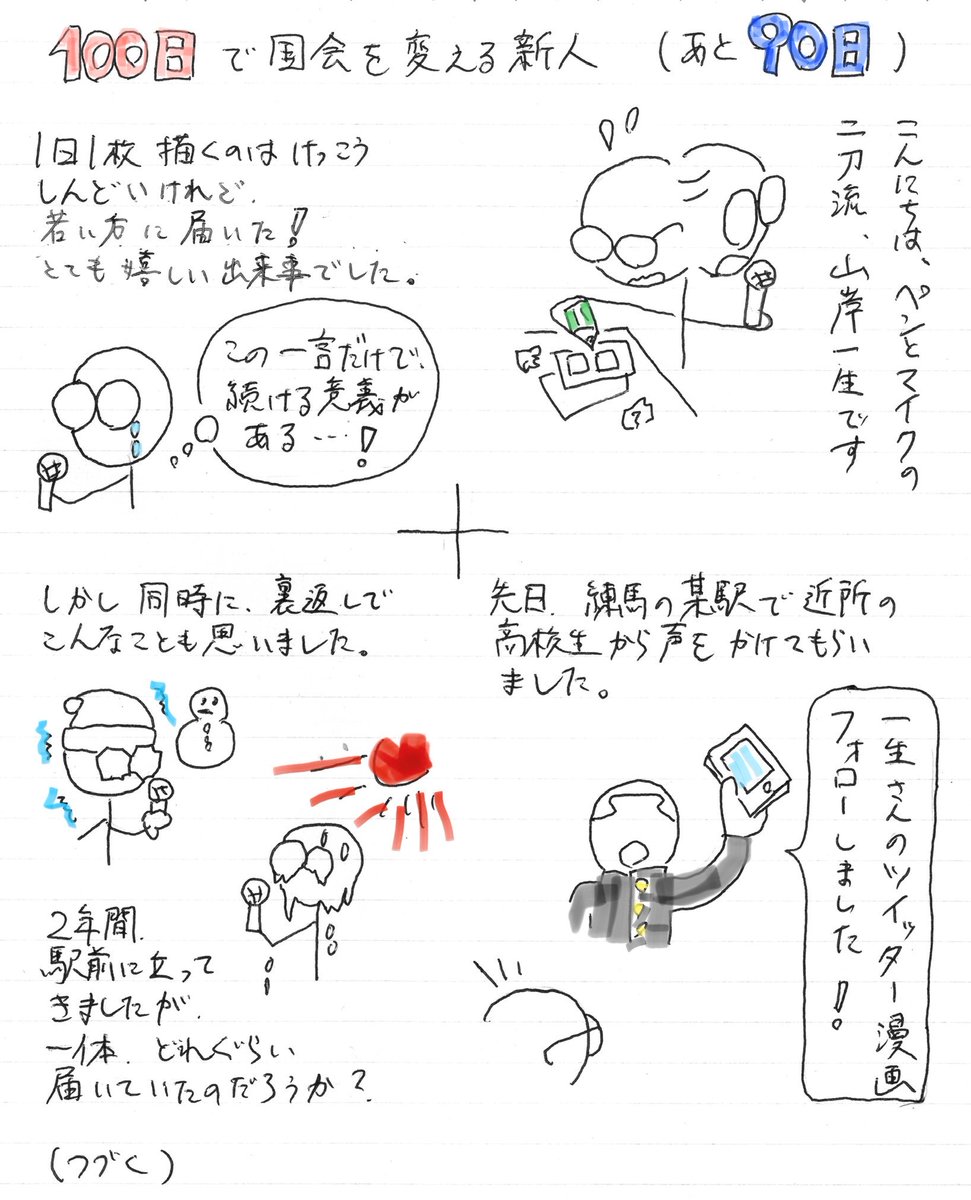 100日で国会を変える新人 (あと90日)
こんにちは、ペンとマイクの
二刀流、山岸一生です
先日、練馬の某駅で近所の
高校生から声をかけてもらい
ました。
一生さんのツイッター漫画
フォローしました!
1日1枚描くのはけっこう
しんどいけれど、
若い方に届いた!
とても嬉しい出来事でした。
この一言だけで、
続ける意義が
ある…!
しかし同時に、裏返しで
こんなことも思いました。
2年間、
駅前に立って
きましたが、
一体、どれぐらい
届いていたのだろうか?
(つづく)